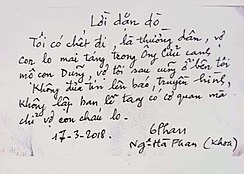 Lời dặn dò
Tôi có chết đi, là thường dân, vợ
con lo mai táng trong Ông Cửu cạnh
mồ con Dũng, vợ tôi sau cũng ở bên tôi
Không đưa tin lên báo, truyền hình,
không lập ban lễ tang có cơ quan mà
chỉ vợ con cháu lo.
17-3-2018. 6 Phan
Ng. Hà Phan (Khoa)